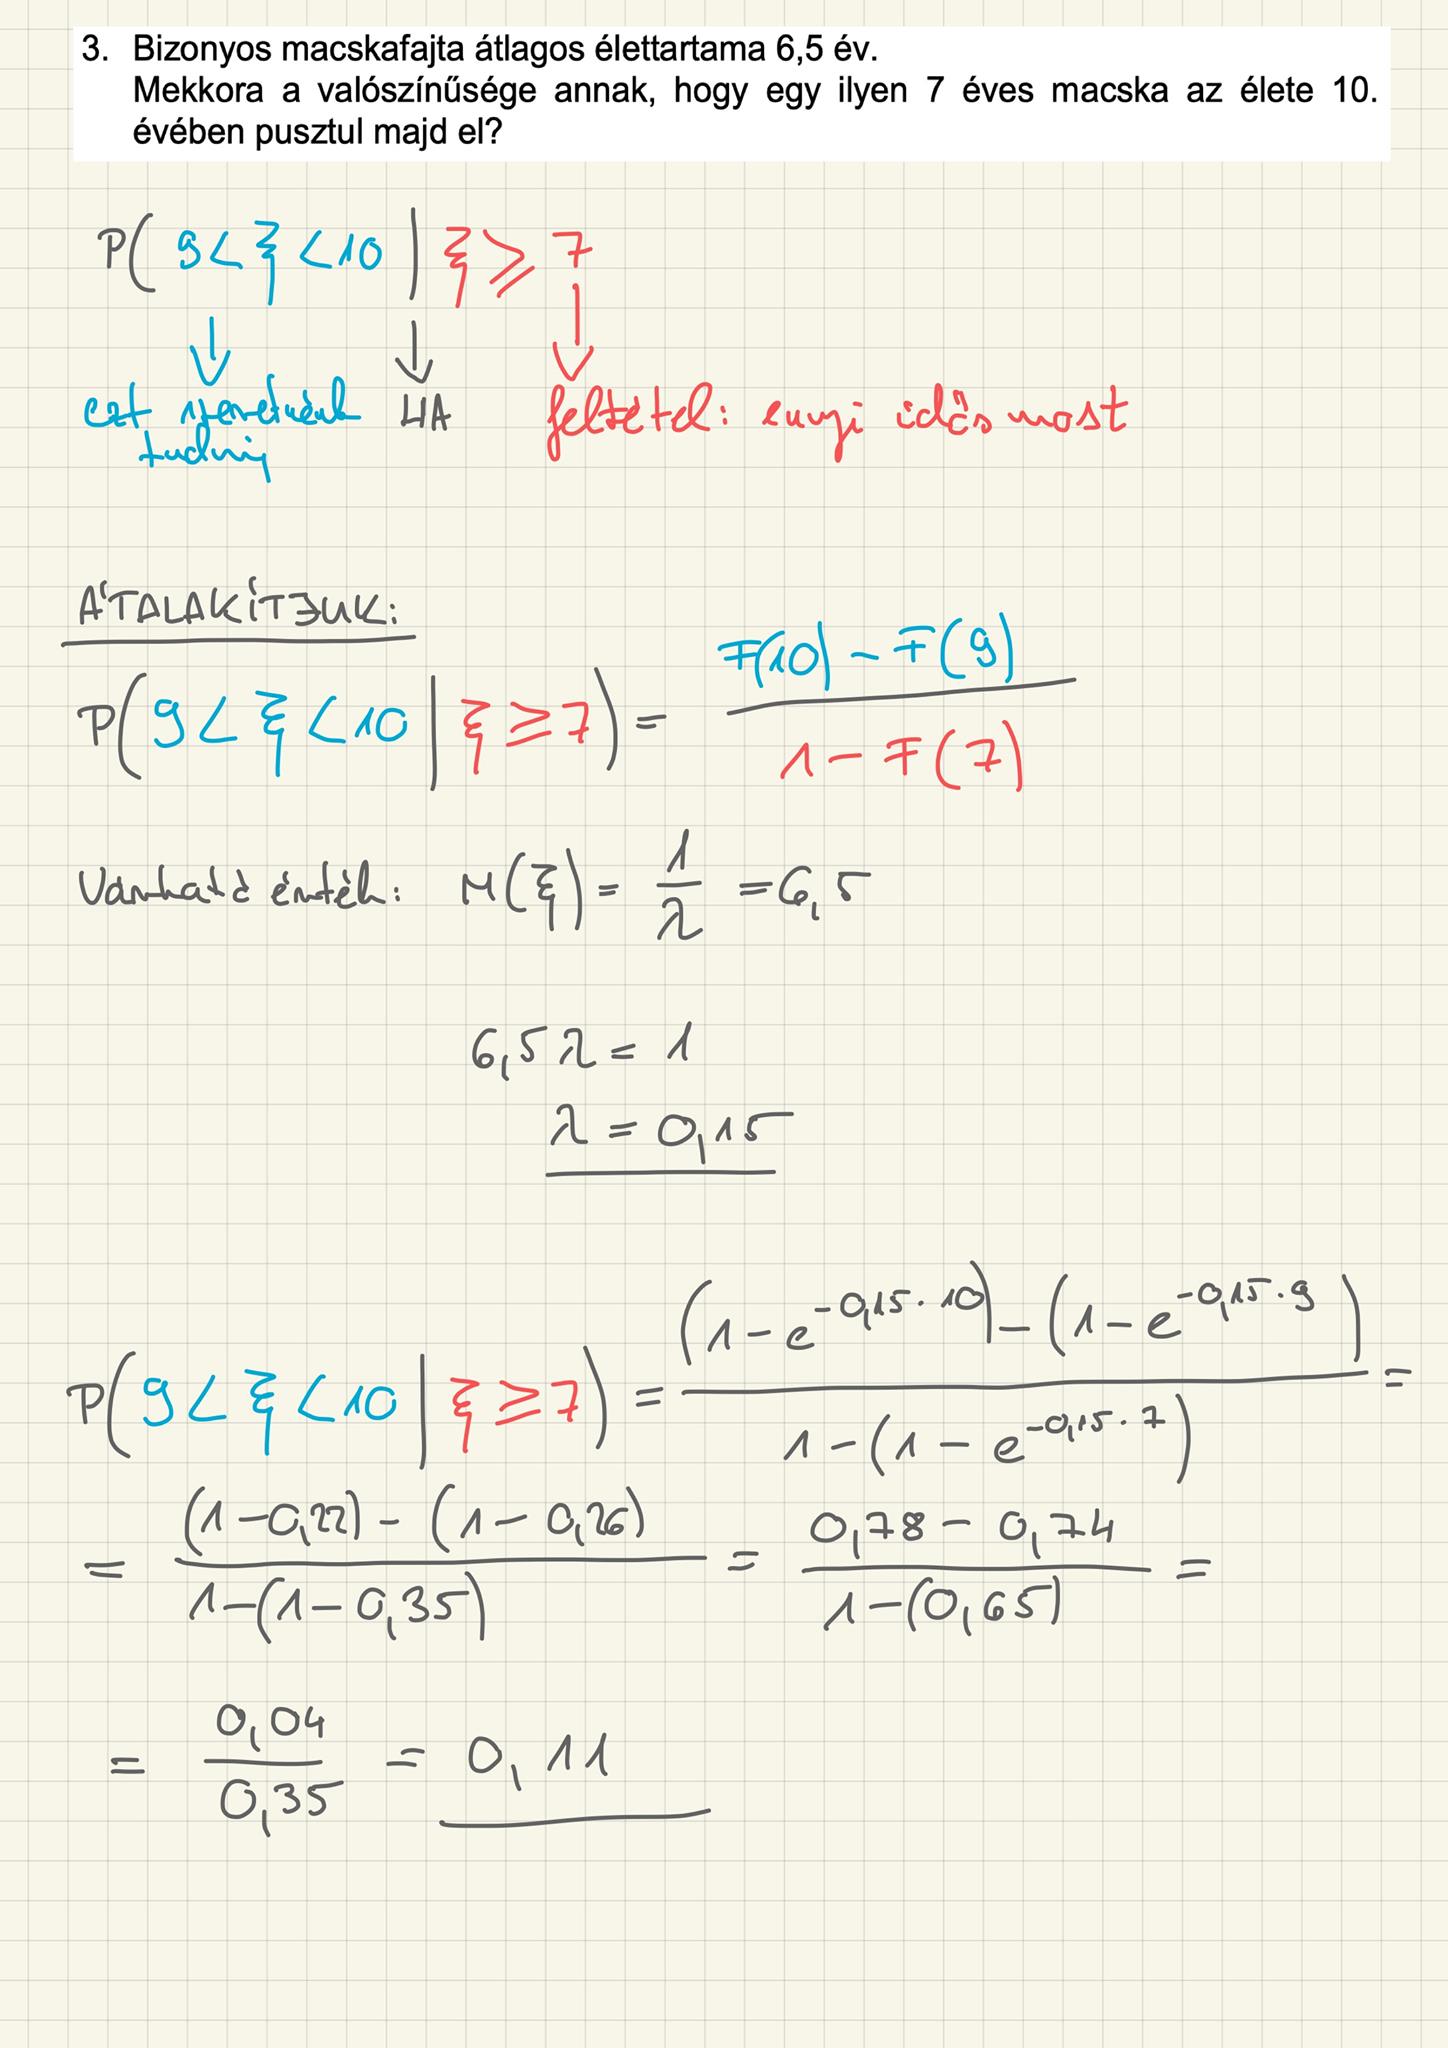 3. Bizonyos macskafajta átlagos élettartama 6,5 év.
Mekkora a valószínűsége annak, hogy egy ilyen 7 éves macska az élete 10.
évében pusztul majd el?
P( 9 < ξ < 10 | ξ ≥ 7
ezt szeretnénk HA feltétel: ennyi idős most
tudni
ÁTALAKÍTJUK:
P( 9 < ξ < 10 | ξ ≥ 7 ) = F(10) - F(9)
1 - F(7)
Várható érték: M(ξ) = 1/λ = 6,5
6,5 λ = 1
λ = 0,15
P( 9 < ξ < 10 | ξ ≥ 7 ) = (1 - e^-0,15·10) - (1 - e^-0,15·9) =
1 - (1 - e^-0,15·7)
= (1-0,22) - (1-0,26) = 0,78 - 0,74 =
1-(1-0,35) 1-(0,65)
= 0,04 = 0,11
0,35